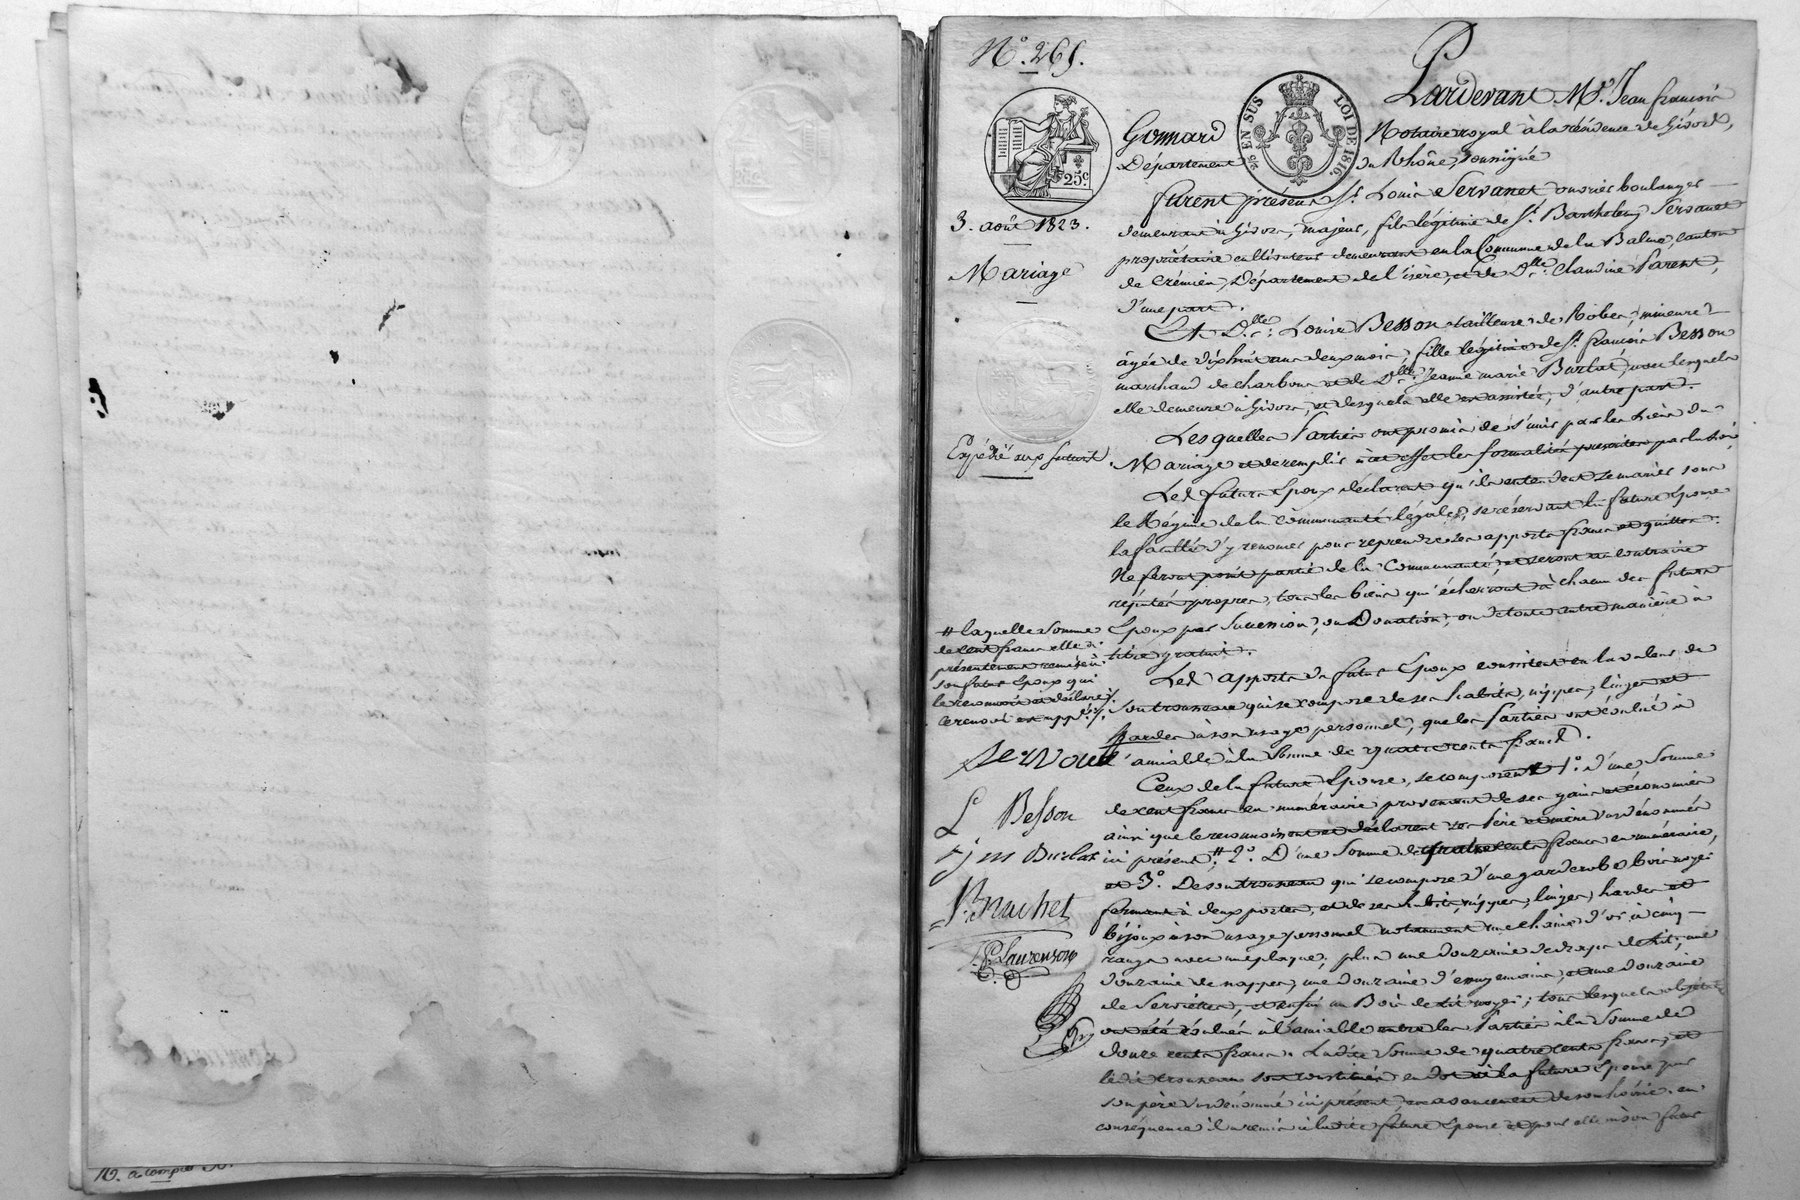 N.o 265.
Pardevant M.e Jean françois
Gonnard Notaire royal à la résidence de Givors,
Département du Rhône, soussigné
EN SUS
LOI DE 1816.
25.c
3. août 1823.
Mariage
Expédié aux futurs
furent présens S.r Louis Servanet ouvrier boulanger
demeurant à Givors, majeur, fils légitime de S.r Barthelemy Servanet
propriétaire cultivateur demeurant en la Commune de la Balme, canton
de Crémieu, Département de l'isère, et de D.lle Claudine Parent,
d'une part.
Et D.lle Louise Besson tailleuse de Robes, mineure
âgée de dixhuit ans deux mois, fille légitime de S.r françois Besson
marchand de charbons et de D.lle Jeanne marie Burlat, avec lesquels
elle demeure à Givors, et desquels elle est assistée, d'autre part.
Lesquelles Parties ont promis de s'unir par les Liens du
Mariage et de remplir à cet effet les formalités prescrites par les lois.
Led. futurs Epoux déclarent qu'ils entendent se marier sous
le Régime de la Communauté légale, se réservant la future Epouse
la faculté d'y renoncer pour reprendre ses apports francs et quittes.
Ne feront point partie de la Communauté, et seront au contraire
réputés propres, tous les biens qui écherront à chacun des futurs
Epoux par Succession, ou Donation, ou de toute autre manière à
titre gratuit.
Led. apports du futur Epoux consistent en la valeur de
son trousseau qui se compose de ses habits, nippes, linges et
hardes à son usage personnel, que les Parties ont évalué à
l'amiable à la somme de quatre cents francs.
Ceux de la future Epouse, se composent 1.o d'une Somme
de cent francs en numéraire provenant de ses gains et économies
ainsi que le reconnoissent et déclarent ses Père et mère susdénommés
ici présent, # 2.o D'une Somme de quatre cents francs en numéraire,
et 3.o De son trousseau qui se compose d'une garderobe bois noyer
fermant à deux portes, et de ses habits, nippes, linges, hardes et
bijoux à son usage personnel notamment une chaine d'or à cinq
rangs avec une plaque; plus une douzaine de draps de lit, une
douzaine de nappes, une douzaine d'essuyemains, et une douzaine
de Serviettes, et enfin un Bois de lit noyer; tous lesquels objets
ont été évalués à l'amiable entre les Parties à la Somme de
douze cents francs. Ladite Somme de quatre cents francs, et
ledit trousseau sont constitués en dot à la future Epouse par
son père susdénommé ici présent en avancement de son hoirie. en
conséquence il remis à ladite future Epouse et pour elle à son futur
# laquelle somme
de cent francs elle a
présentement remise à
son futur Epoux qui
le reconnoit et déclare
le renvoi est app.é
Servané
L.e Besson
j m Burlat
P. Brachet
P. Laurenson